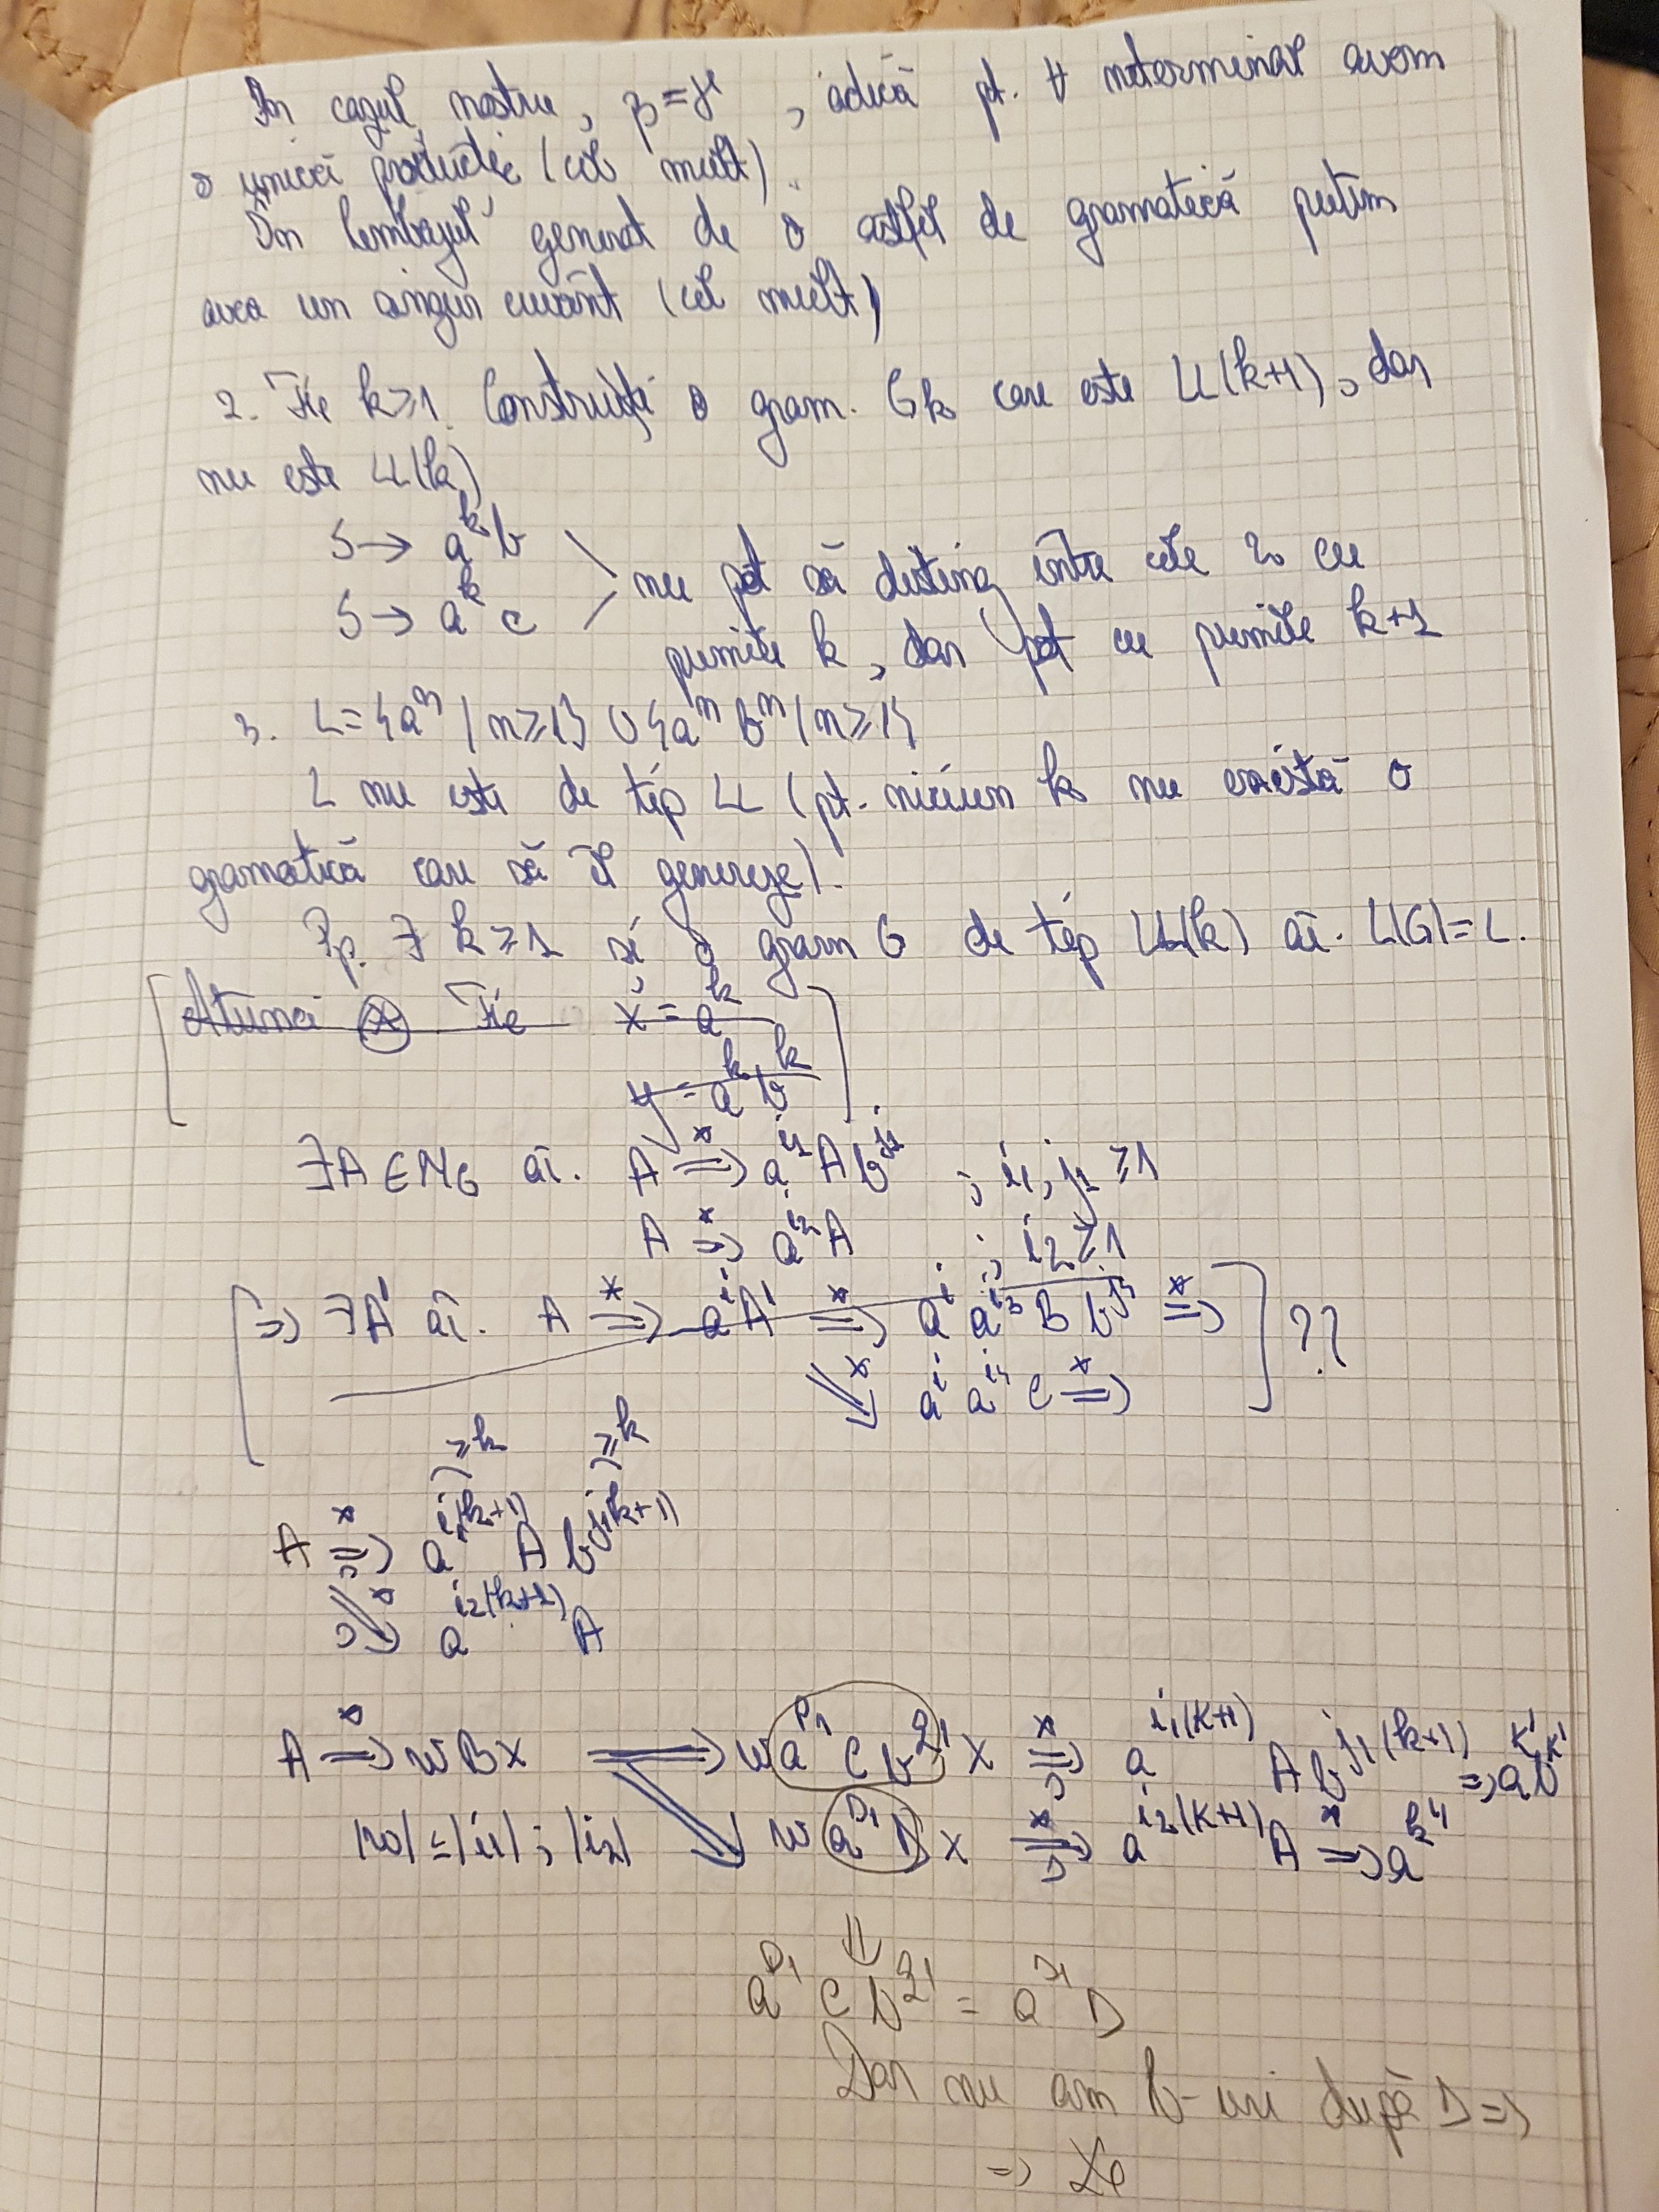 În cazul nostru, β=γ, adică pt. ∀ neterminal avem
o unică producție (cel mult).
În limbajul generat de o astfel de gramatică putem
avea un singur cuvânt (cel mult)
2. Fie k≥1. Construiți o gram. Gk care este LL(k+1), dar
nu este LL(k)
S → a^k b
S → a^k c
nu pot să disting între cele 2 cu
primele k, dar pot cu primele k+1
3. L={a^n | n≥1} ∪ {a^n b^n | n≥1}
L nu este de tip LL (pt. niciun k nu există o
gramatică care să îl genereze).
Pp. ∃ k≥1 și o gram G de tip LL(k) aî. L(G)=L.
Atunci ⊗ Fie x = a^k
y = a^k b^k
∃A∈N_G aî. A ⇒* a^i1 A b^j1 ; i1, j1 ≥1
A ⇒* a^i2 A ; i2 ≥1
⇒ ∃A' aî. A ⇒* a^i A' ⇒* a^i a^i3 B b^j3 ⇒* ??
⇒* a^i a^i4 C ⇒*
≥k ≥k
A ⇒* a^i1(k+1) A b^j1(k+1)
⇒* a^i2(k+1) A
A ⇒* wBx ⇒ w a^p1 C b^q1 x ⇒* a^i1(k+1) A b^j1(k+1) ⇒ a^k' b^k'
|w| ≤ |i1| ; |i2| w D x ⇒* a^i2(k+1) A ⇒* a
⇓
a^p1 C b^q1 = D
Dar nu am b-uri după D ⇒
⇒